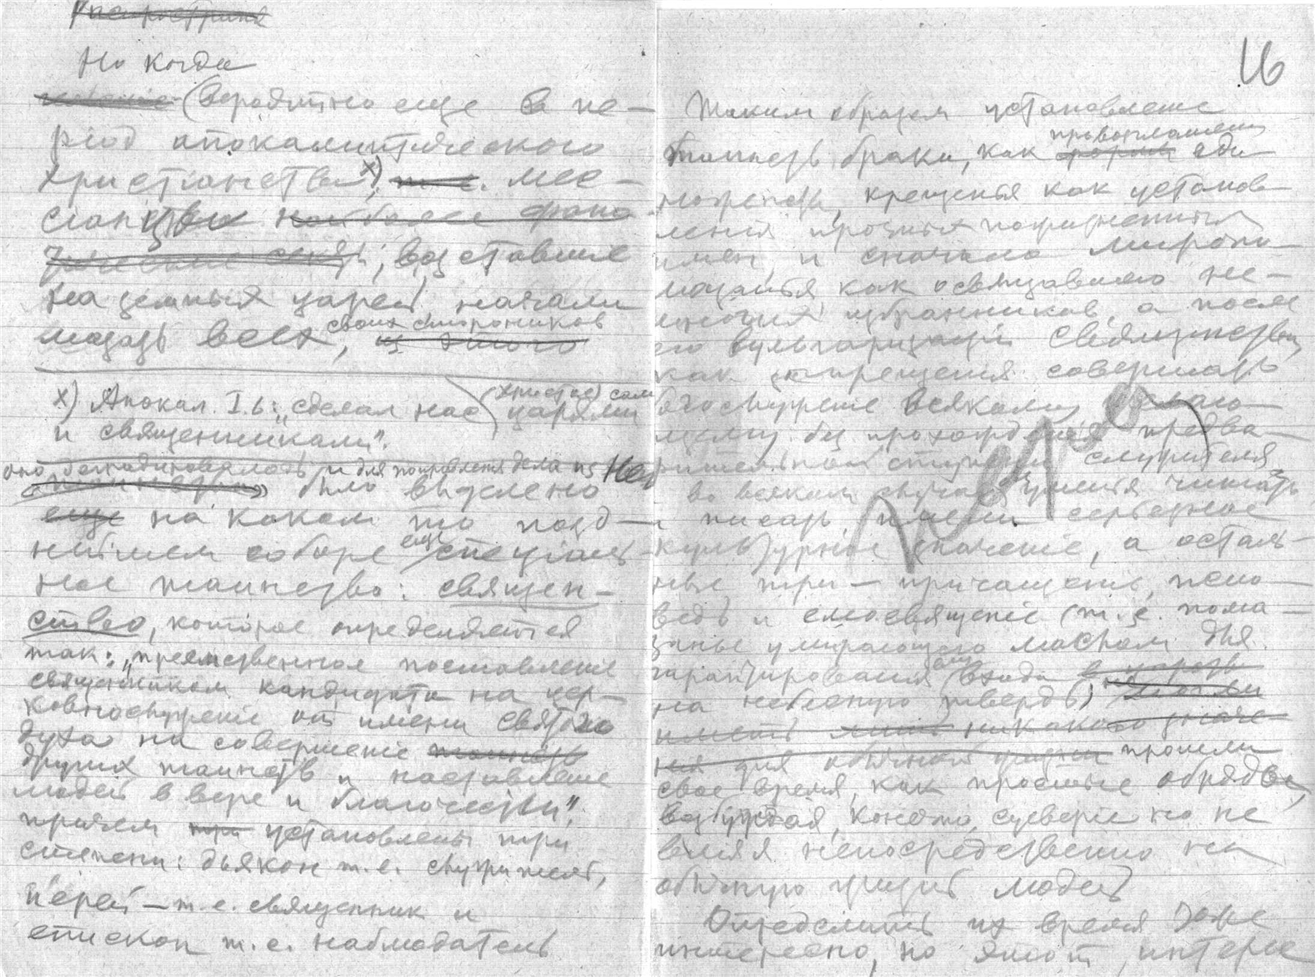 Но когда
(вероятно еще в пе-
ріод апокалиптического
христіанства x),
мес-
сіанцы
, возставшие
на земныя царей, начали
мазать всех, своих сторонников
x) Апокал. I.6: „сделал нас (Христос) сам царями
и священниками".
оно и для поправленія дела из него
было выделено
на каком то позд-
нейшем соборе еще спеціаль-
ное таинство: священ-
ство, которое определяется
так: „преемственное поставленіе
священником кандидата на цер-
ковнослуженіе от имени святого
духа на совершеніе
других таинств и наставленіе
людей в вере и благочестіи".
причем установлены три
степени: дьякон т.е. служитель,
іерей – т.е. священник и
епископ т.е. наблюдатель
16
Таким образом установленіе
таинств брака, как провозглашенія едино-
женства, крещенья как установ-
ленія прозвищ
имен, и сначала миропо-
мазанья, как освящавшего не-
многих избранников, а после
его вульгаризаціи священства,
как запрещенія совершать
богослуженіе всякому
без прохожденія предва-
рительной ступени служителя
во всяком случае уменья читать
и писать, имели серьезное
культурное значеніе, а осталь-
ные три – причащеніе, испо-
ведь и елеосвященіе (т.е. пома-
занье умирающего маслом для
гарантированія ему входа
на небесную твердь)
прошли
свое время, как простые обряды,
возбуждая, конечно, суеверіе но не
вліяя непосредственно на
обычную жизнь людей
Определить их время тоже
интересно, но этот интерес